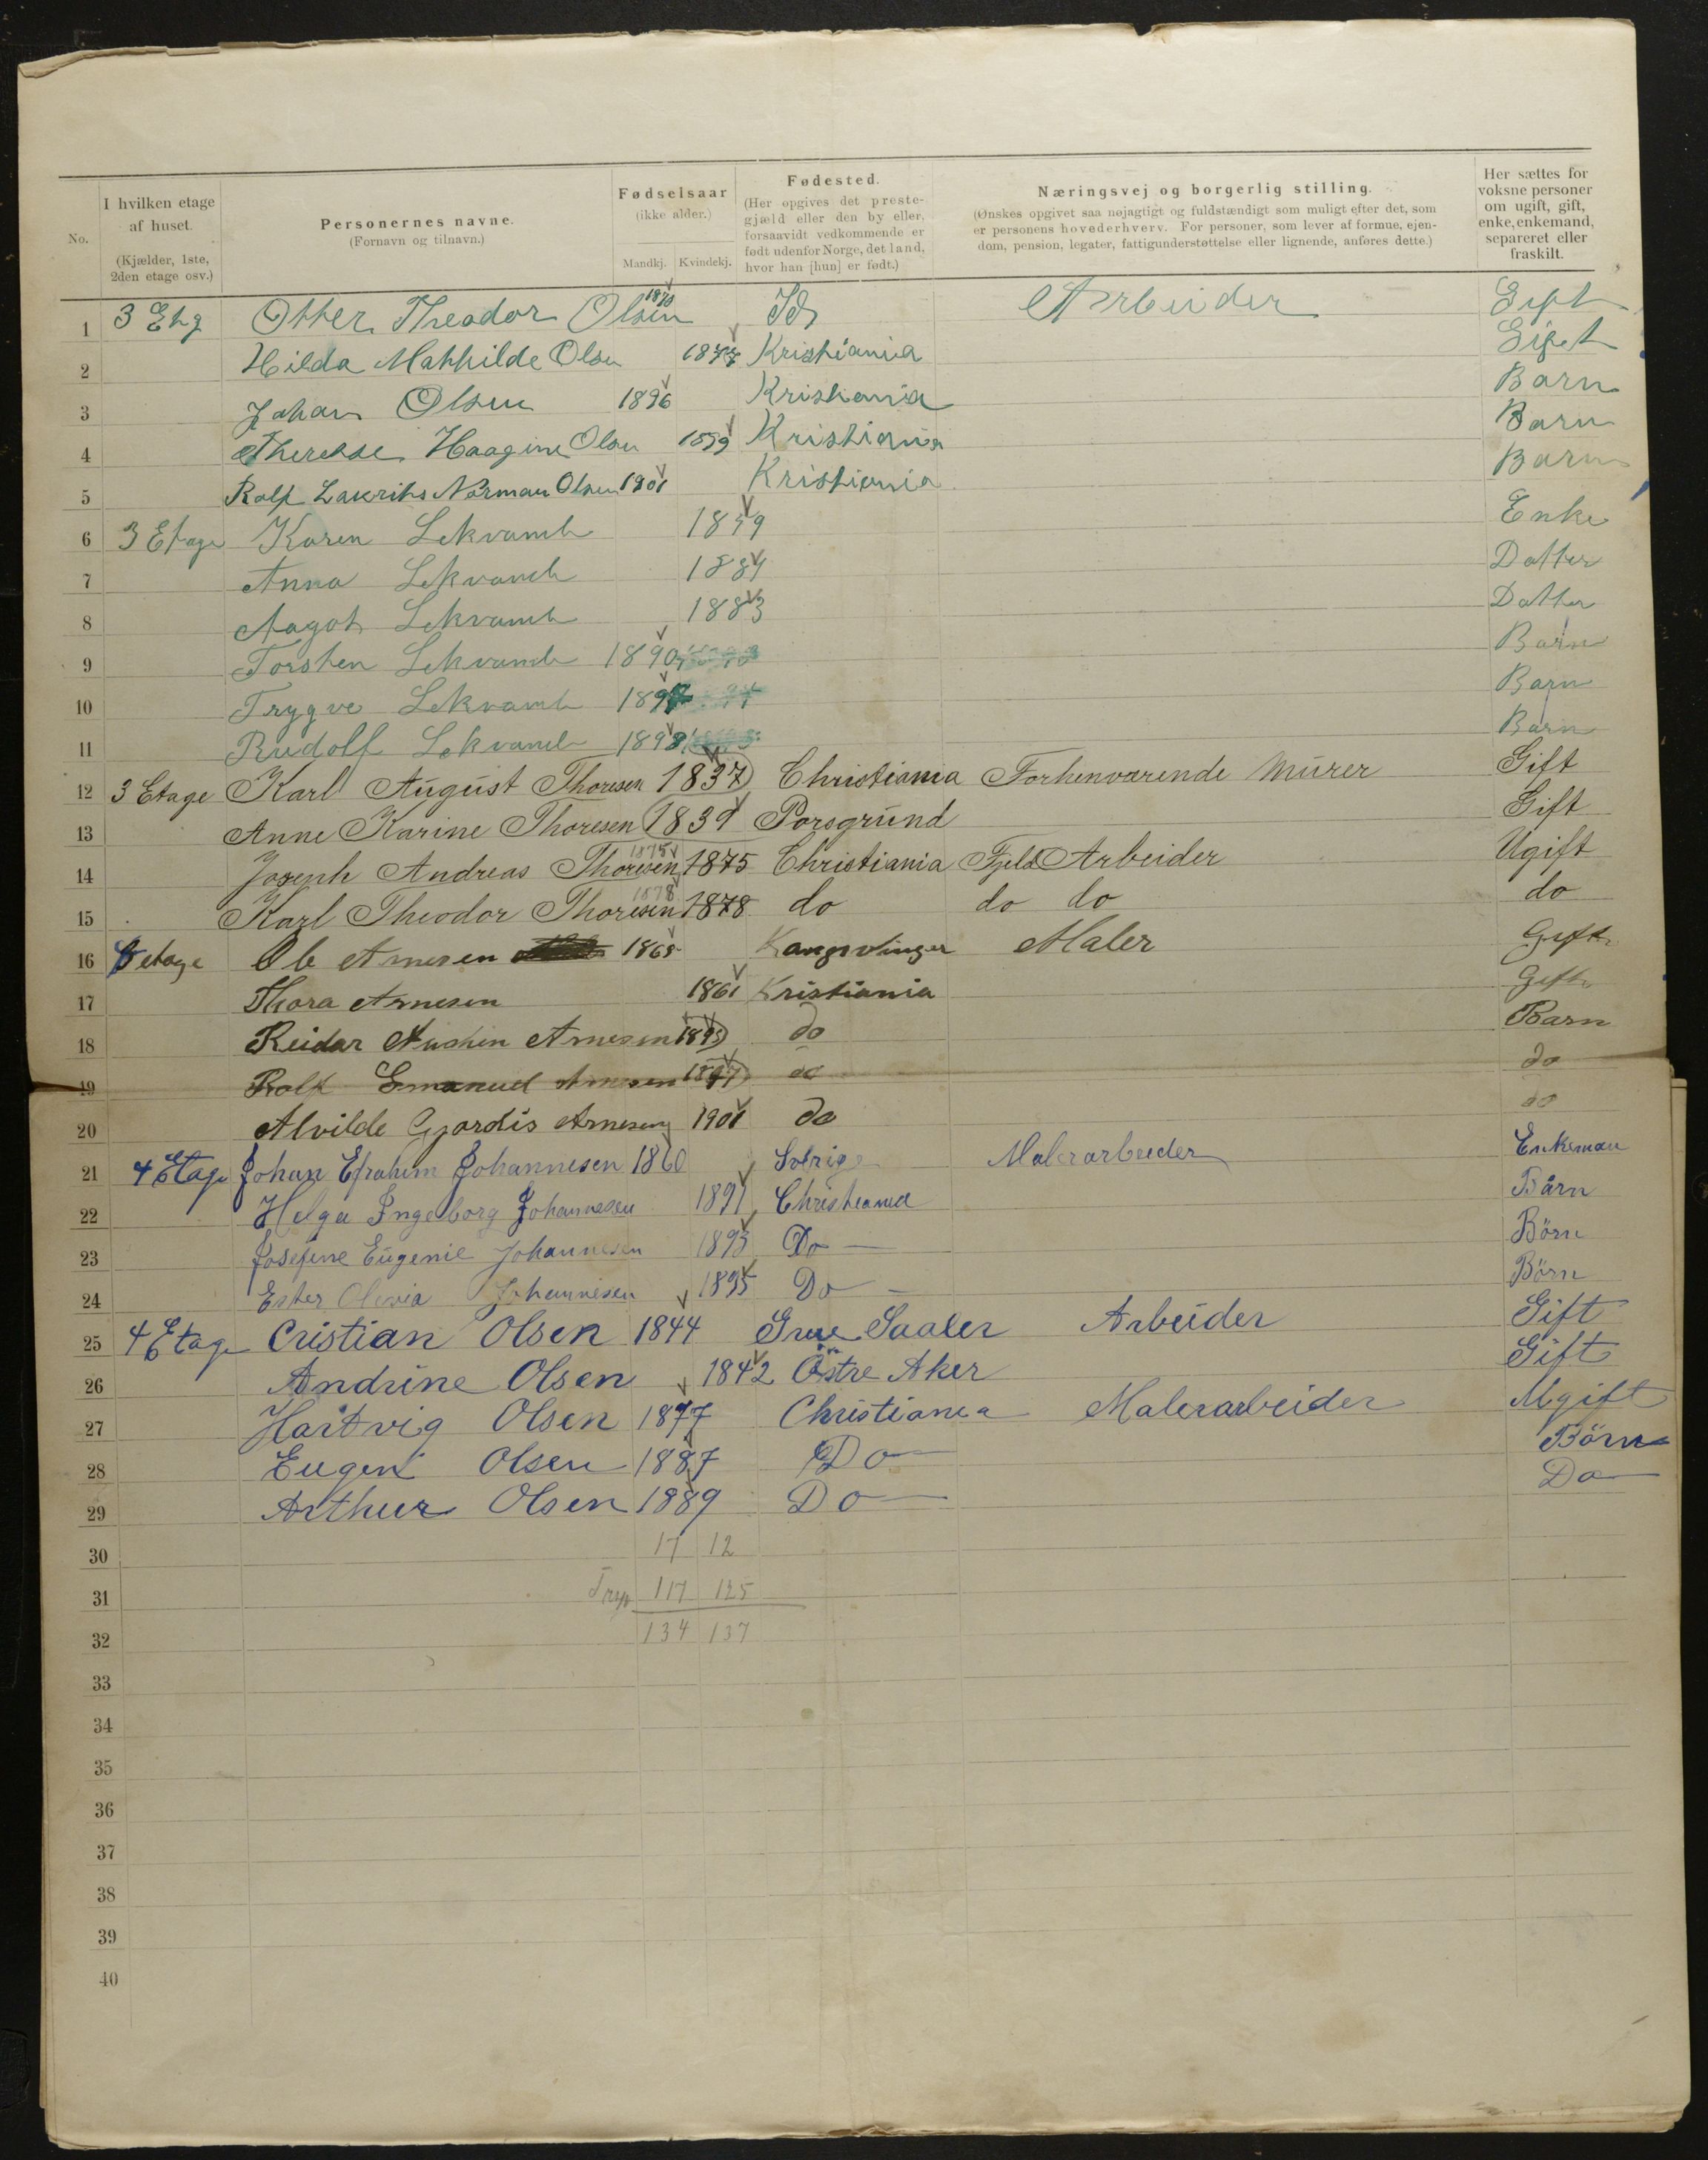 No.
I hvilken etage af huset.
(Kjælder, 1ste, 2den etage osv.)
Personernes navne.
(Fornavn og tilnavn.)
Fødselsaar
(ikke alder.)
Mandkj. Kvindekj.
Fødested.
(Her opgives det preste-
gjæld eller den by eller,
forsaavidt vedkommende er
født udenfor Norge, det land,
hvor han [hun] er født.)
Næringsvej og borgerlig stilling.
(Ønskes opgivet saa nøjagtigt og fuldstændigt som muligt efter det, som
er personens hovederhverv. For personer, som lever af formue, ejen-
dom, pension, legater, fattigunderstøttelse eller lignende, anføres dette.)
Her sættes for
voksne personer
om ugift, gift,
enke, enkemand,
separeret eller
fraskilt.
1 3 Etg Otter Theodor Olsen 1870 Id Arbeider Gift
2 Hilda Mathilde Olsen 1877 Kristiania Gift
3 Johan Olsen 1896 Kristiania Barn
4 Therese Haagine Olsen 1899 Kristiania Barn
5 Rolf Lauritz Norman Olsen 1901 Kristiania Barn
6 3 Etage Karen Lekvamb 1859 Enke
7 Anna Lekvamb 1884 Datter
8 Aagot Lekvamb 1883 Datter
9 Torsten Lekvamb 1890 Barn
10 Trygve Lekvamb 1894 Barn
11 Rudolf Lekvamb 1898 Barn
12 3 Etage Karl August Thoresen 1837 Christiania Forhenværende Murer Gift
13 Anne Karine Thoresen 1839 Porsgrund Gift
14 Joseph Andreas Thoresen 1875 1875 Christiania Fjeld Arbeider Ugift
15 Karl Theodor Thoresen 1878 1878 do do do do
16 etage Ole Arnesen 1865 Kongsvinger Maler Gift
17 Thora Arnesen 1861 Kristiania Gift
18 Reidar Arnesen 1895 do Barn
19 Rolf Emanuel Arnesen 1897 do do
20 Alvilde Gjordis Arnesen 1901 do do
21 4 Etage Johan Efrahim Johannesen 1860 Sverige Malerarbeider Enkeman
22 Helga Ingeborg Johannesen 1891 Christiania Bārn
23 Josefine Eugenie Johannesen 1893 Do Börn
24 Ester Olivia Johannesen 1895 Do Börn
25 4 Etage Cristian Olsen 1844 Grue Saaler Arbeider Gift
26 Andrine Olsen 1842 Östre Aker Gift
27 Hartvig Olsen 1877 Christiania Malerarbeider Ugift
28 Eugen Olsen 1887 Do Börn
29 Arthur Olsen 1889 Do Do
30 17 12
31 117 125
32 134 137
33
34
35
36
37
38
39
40